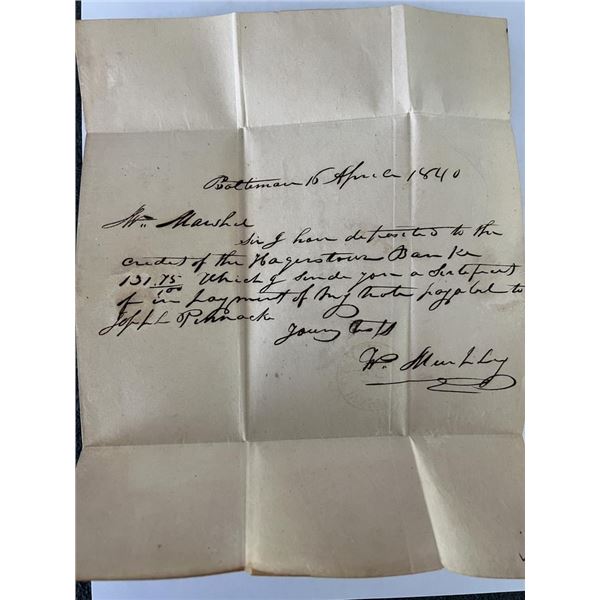 Baltimore 16 April 1840
Mr. Marshel
Sir I have deposited to the
credet of the Hagerstown Banke
131 75/100 Which I sende you a Sertefecet
of in payment of My Note payabel to
Joseph Pennock
Yours &c
Wm. Murphy